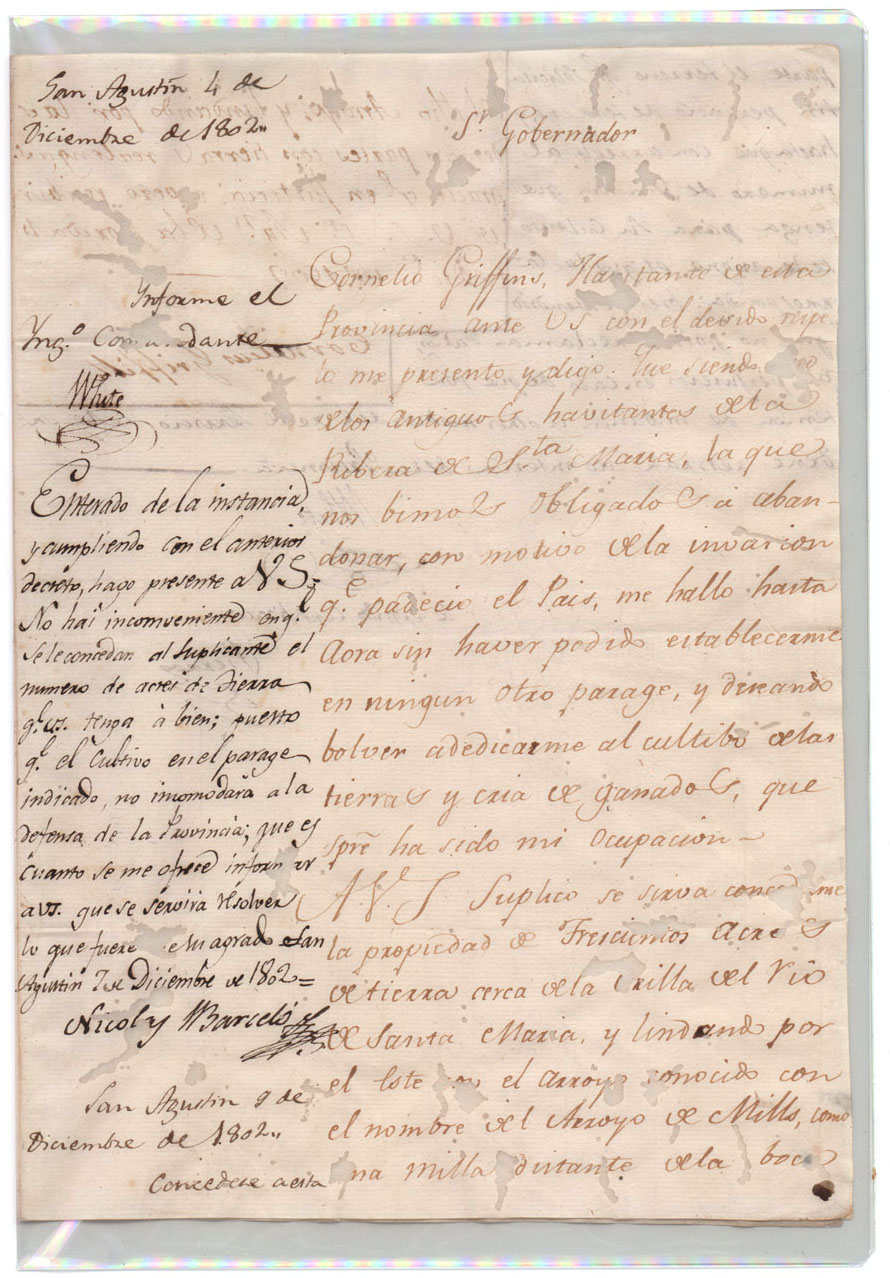 San Agustin 4 de
Diciembre de 1802,,
Informe el
Yng.º Comandante
White
Enterado de la instancia,
y cumpliendo con el anterior
decreto, hago presente a V S.
No hai incomveniente en q.e
se le concedan al Suplicante el
numero de acres de Tierra
q.e VS. tenga à bien; puesto
q.e el Cultivo en el parage
indicado, no incomodarà a la
defensa de la Provincia; que es
cuanto se me ofrece informar
a VS. que se servirà resolver
lo que fuere de su agrado San
Agustin 7 de Diciembre de 1802=
Nicolas Barcelò
San Agustin 9 de
Diciembre de 1802,,
Concedese a esta
S.r Gobernador
Cornelio Griffins, Havitante de esta
Provincia ante VS con el devido respe
to me presento y digo: Que siendo uno
de los antiguos havitantes de la
Ribera de S.ta Maria, la que
nos bimos obligados a aban-
donar, con motivo de la invacion
q.e padecio el Pais, me hallo hasta
Aora sin haver podido establecerme
en ningun otro parage, y deseando
bolver a dedicarme al cultibo de las
tierras y cria de ganados, que
spre ha sido mi ocupacion
A V. S Suplico se sirva concederme
la propiedad de Trescientos Acres
de tierra cerca de la orilla del Rio
de Santa Maria, y lindando por
el Este con el arroyo conocido con
el nombre del Arroyo de Mills, como
una milla distante de la boca